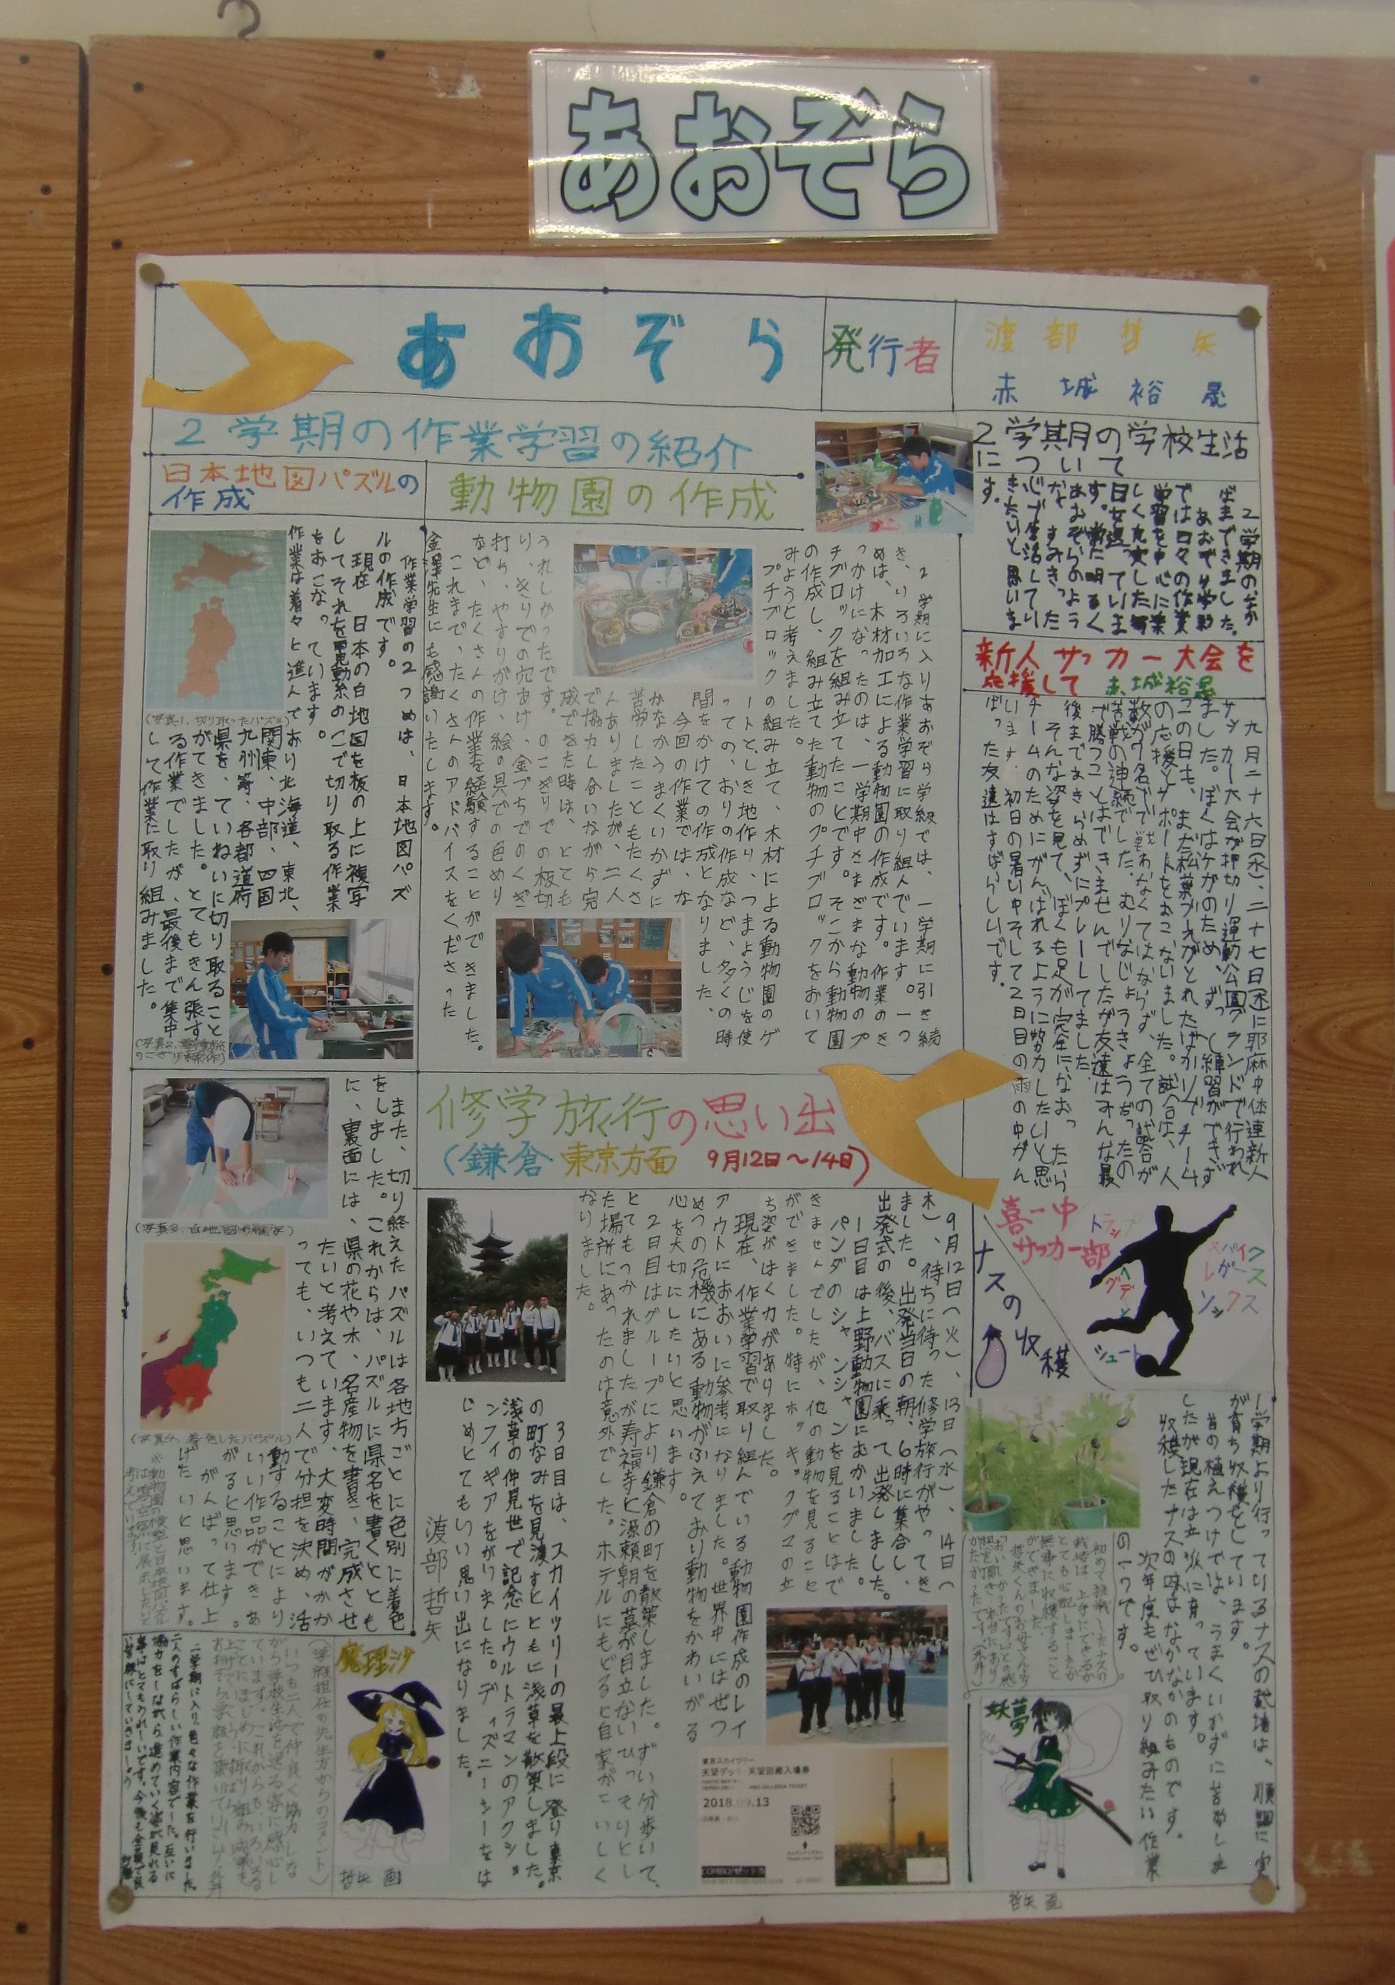 あおぞら
あおぞら
発行者
渡部哲矢
赤城裕晟
2学期の学校生活
について
2学期のなか
ばまできました。
あおぞら学級
では日々の作業
学習を中心に楽
しく充実した毎
日を送っていま
す。常に明るく
あおぞらのよう
なすみきった
心で生活してい
きたいと思いま
す。
新人サッカー大会を
応援して 赤城裕晟
九月二十六日(水)、二十七日(木)に耶麻中体連新人
サッカー大会が押切り運動公園グランドで行われ
ました。ぼくはケガのため、ずっと練習ができず
この日も、まだ松葉づえがとれたばかりでチーム
の応援とサポートをおこないました。試合は、人
数が
名でで戦わなくてはならず、全ての試合が
苦戦の連続でした。むりなじょうきょうだったの
で勝つことはできませんでしたが友達はみんな最
後まであきらめずにプレーしてました。
そんな姿を見て、ぼくも足が完全になおったら
チームのためにがんばれるように努力したいと思
います。初日の暑い中そして2日目の雨の中がん
ばった友達はすばらしいです。
喜一中
サッカー部
トラップ
ヘディング
シュート
スパイク
レガース
ソックス
ナスの収穫
1学期より行っているナスの栽培は、順調に実
が育ち収穫をしています。
苗の植えつけでは、うまくいかずに苦労しま
したが現在は立派に育っています。
収穫したナスの味はなかなかのものです。
次年度もぜひ取り組みたい作業
の一つです。
妖夢
哲矢 画
2学期の作業学習の紹介
動物園の作成
2学期に入りあおぞら学級では、一学期に引き続
き、いろいろな作業学習に取り組んでいます。一つ
めは、木材加工による動物園の作成です。作業のき
っかけになったのは、一学期中さまざまな動物のプ
チブロックを組み立てたことです。そこから動物園
の作成し、組み立てた動物のプチブロックをおいて
みようと考えました。
プチブロックの組み立て、木材による動物園のゲ
ートと、しき地作り、つまようじを使
っての、おりの作成など、多くの時
間をかけての作成となりました。
今回の作業では、な
かなかうまくいかずに
苦労したこともたくさ
んありましたが、二人
で協力し合いながら完
成できた時は、とても
うれしかったです。のこぎりでの板切
り、きりでの穴あけ、金づちでのくぎ
打ち、やすりがけ、絵の具での色ぬり
など、たくさんの作業を経験することができました。
これまで、たくさんのアドバイスをくださった
金澤先生にも感謝いたします。
日本地図パズルの
作成
作業学習の2つめは、日本地図パズ
ルの作成です。
現在、日本の白地図を板の上に複写
してそれを電動糸のこで切り取る作業
をおこなっています。
作業は着々と進んでおり北海道、東北、
関東、中部、四国
九州等、各都道府
県を、ていねいに切り取ること
ができました。とてもきん張す
る作業でしたが、最後まで集中
して作業に取り組みました。
(写真1、切り取ったパズル)
また、切り終えたパズルは各地方ごとに色別に着色
をしました。これからは、パズルに県名を書くととも
に、裏面には、県の花や木、名産物を書き、完成させ
たいと考えています。大変時間がかか
っても、いつも二人で分担を決め、活
動することにより
いい作品ができあ
がると思います。
がんばって仕上
げたいと思います。
(写真3、白地図の複写)
(写真4、着色したパズル)
修学旅行の思い出
(鎌倉 東京方面 9月12日〜14日)
9月12日(火)、13日(水)、14日(
木)、待ちに待った修学旅行がやってき
ました。出発当日の朝、6時に集合し、
出発式の後、バスに乗って出発しました。
1日目は上野動物園におかいました。
パンダのシャンシャンを見ることはで
きませんでしたが、他の動物を見ること
ができました。特にホッキョクグマの立
ち姿がはく力がありました。
現在、作業学習で取り組んでいる動物園作成のレイ
アウトにおおいに参考になりました。世界中にはぜつ
めつの危機にある動物がふえており動物をかわいがる
心を大切にしたいと思います。
2日目はグループにより鎌倉の町を散策しました。ずい分歩いて、
とてもつかれましたが寿福寺と源頼朝の墓が目立ないひっそりとし
た場所にあったのは意外でした。ホテルにもどると自家がこいしく
なりました。
3日目は、スカイツリーの最上段に登り東京
の町なみを見渡すとともに浅草を散策しました。
浅草の仲見世で記念にウルトラマンのアクショ
ンフィギアをかりました。ディズニーシーをは
じめとてもいい思い出になりました。
渡部哲矢
東京スカイツリー
天望デッキ 天望回廊入場券
2018.09.13
魔理沙
哲矢 画
(学級担任の先生方からのコメント)
いつも二人で仲良く協力しな
二学期に入り、色々な作業を行いました。
二人のすばらしい作業内容でした。互いに
協力をしながら進めていく姿が見れる